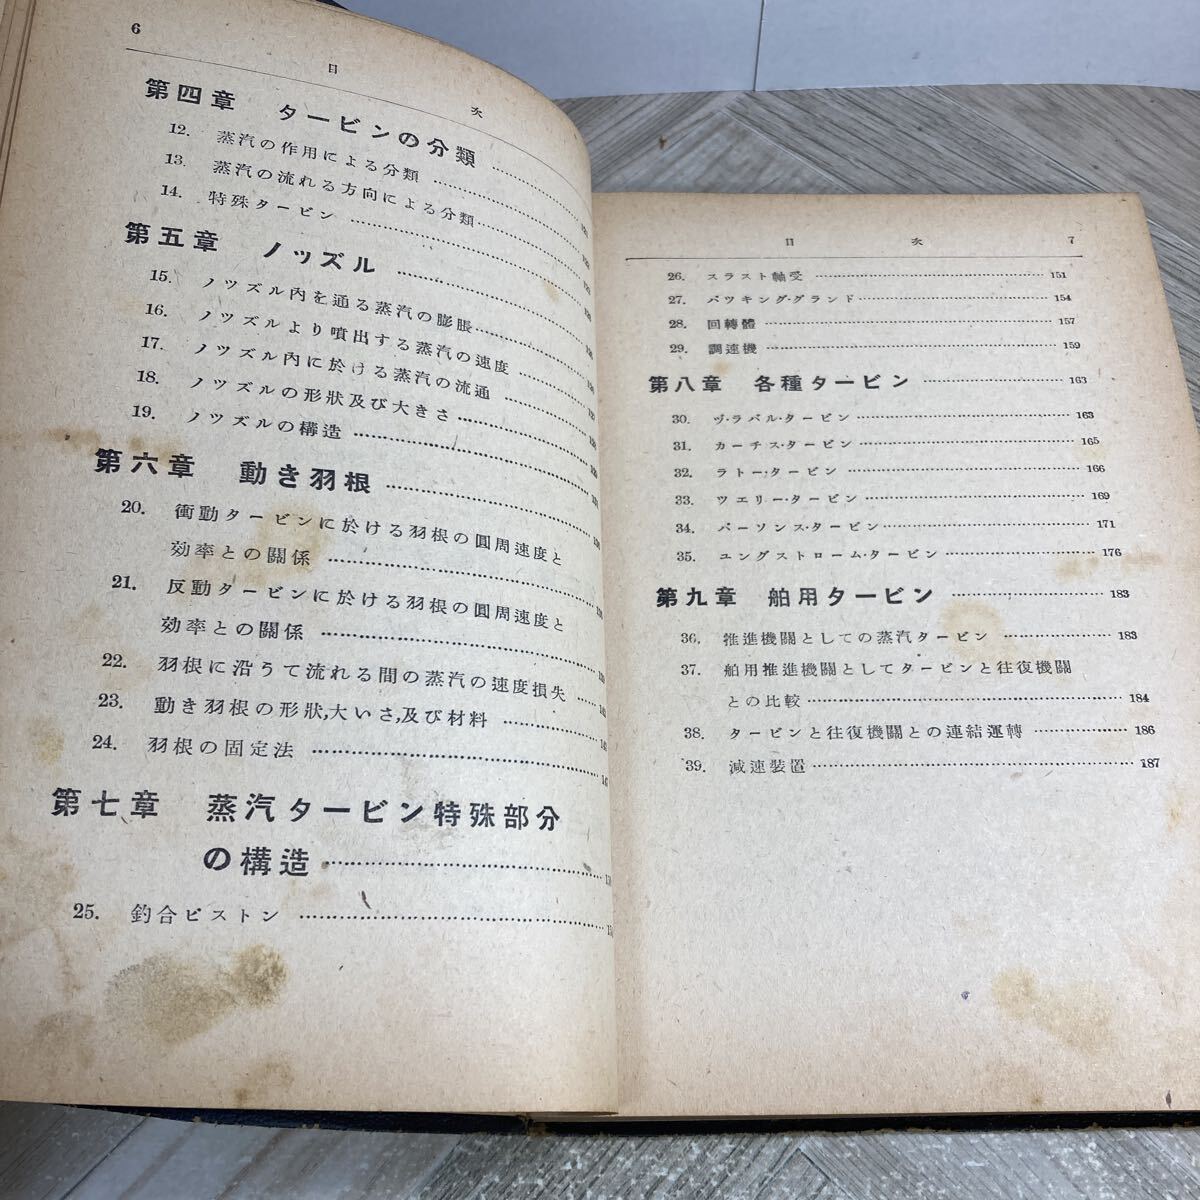 6
目 次
第四章 タービンの分類
12. 蒸汽の作用による分類
13. 蒸汽の流れる方向による分類
14. 特殊タービン
第五章 ノッズル
15. ノツズル內を通る蒸汽の膨脹
16. ノツズルより噴出する蒸汽の速度
17. ノツズル內に於ける蒸汽の流通
18. ノツズルの形狀及び大きさ
19. ノツズルの構造
第六章 動き羽根
20. 衝動タービンに於ける羽根の圓周速度と
効率との關係
21. 反動タービンに於ける羽根の圓周速度と
効率との關係
22. 羽根に沿うて流れる間の蒸汽の速度損失
23. 動き羽根の形狀,大いさ,及び材料
24. 羽根の固定法
第七章 蒸汽タービン特殊部分
の構造
25. 釣合ピストン
目 次 7
26. スラスト軸受 151
27. パツキング・グランド 154
28. 回轉體 157
29. 調速機 159
第八章 各種タービン 163
30. ヴ・ラバル・タービン 163
31. カーチス・タービン 165
32. ラトー・タービン 166
33. ツエリー・タービン 169
34. パーソンス・タービン 171
35. ユングストローム・タービン 176
第九章 舶用タービン 183
36. 推進機關としての蒸汽タービン 183
37. 舶用推進機關としてタービンと往復機關
との比較 184
38. タービンと往復機關との連結運轉 186
39. 減速裝置 187